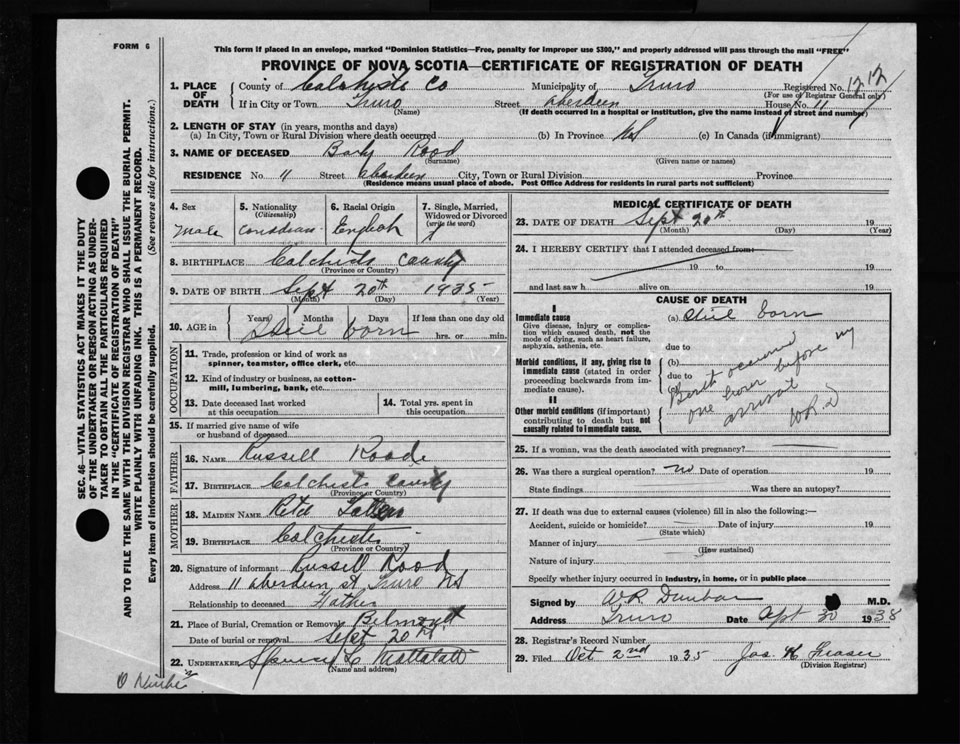 FORM 6
This form if placed in an envelope, marked "Dominion Statistics—Free, penalty for improper use $300," and properly addressed will pass through the mail "FREE"
PROVINCE OF NOVA SCOTIA—CERTIFICATE OF REGISTRATION OF DEATH
1. PLACE OF DEATH County of Colchester Co Municipality of Truro Registered No. 1212
(For use of Registrar General only)
If in City or Town Truro Street Aberdeen House No. 11
(Name) (If death occurred in a hospital or institution, give the name instead of street and number)
2. LENGTH OF STAY (in years, months and days)
(a) In City, Town or Rural Division where death occurred (b) In Province NS (c) In Canada (if immigrant)
3. NAME OF DECEASED Baby Rood
(Surname) (Given name or names)
RESIDENCE No. 11 Street Aberdeen City, Town or Rural Division Province
(Residence means usual place of abode. Post Office Address for residents in rural parts not sufficient)
4. Sex 5. Nationality (Citizenship) 6. Racial Origin 7. Single, Married, Widowed or Divorced (write the word)
Male Canadian English
8. BIRTHPLACE Colchester County
(Province or Country)
9. DATE OF BIRTH Sept 20th 1935
(Month) (Day) (Year)
10. AGE in Years Months Days If less than one day old
Still born hrs. or min.
OCCUPATION
11. Trade, profession or kind of work as spinner, teamster, office clerk, etc.
12. Kind of industry or business, as cotton-mill, lumbering, bank, etc.
13. Date deceased last worked at this occupation 14. Total yrs. spent in this occupation
15. If married give name of wife or husband of deceased
FATHER
16. NAME Russell Roode
17. BIRTHPLACE Colchester County
(Province or Country)
MOTHER
18. MAIDEN NAME Rita
19. BIRTHPLACE Colchester
(Province or Country)
20. Signature of informant Russell Rood
Address 11 Aberdeen St, Truro NS
Relationship to deceased Father
21. Place of Burial, Cremation or Removal Belmont
Date of burial or removal Sept 20th
22. UNDERTAKER
(Name and address)
MEDICAL CERTIFICATE OF DEATH
23. DATE OF DEATH Sept 20th 19
(Month) (Day) (Year)
24. I HEREBY CERTIFY that I attended deceased from:
19 to 19
and last saw h alive on 19
CAUSE OF DEATH
I
Immediate cause (a) Still born
Give disease, injury or complication which caused death, not the mode of dying, such as heart failure, asphyxia, asthenia, etc.
due to
Morbid conditions, if any, giving rise to immediate cause (stated in order proceeding backwards from immediate cause). (b)
due to
II
Other morbid conditions (if important) contributing to death but not causally related to immediate cause.
Birth occurred
one hour before my
arrival
WRD
25. If a woman, was the death associated with pregnancy?
26. Was there a surgical operation? no Date of operation 19
State findings Was there an autopsy?
27. If death was due to external causes (violence) fill in also the following:—
Accident, suicide or homicide? Date of injury 19
(State which)
Manner of injury
(How sustained)
Nature of injury
Specify whether injury occurred in industry, in home, or in public place
Signed by W R Dunbar M.D.
Address Truro Date Apt 30 1938
28. Registrar's Record Number
29. Filed Oct 2nd 1935 Jas K Fraser
(Division Registrar)
SEC. 46—VITAL STATISTICS ACT MAKES IT THE DUTY
OF THE UNDERTAKER OR PERSON ACTING AS UNDER-
TAKER TO OBTAIN ALL THE PARTICULARS REQUIRED
IN THE "CERTIFICATE OF REGISTRATION OF DEATH"
AND TO FILE THE SAME WITH THE DIVISION REGISTRAR WHO SHALL ISSUE THE BURIAL PERMIT.
WRITE PLAINLY WITH UNFADING INK. THIS IS A PERMANENT RECORD.
Every item of information should be carefully supplied. (See reverse side for instructions.)